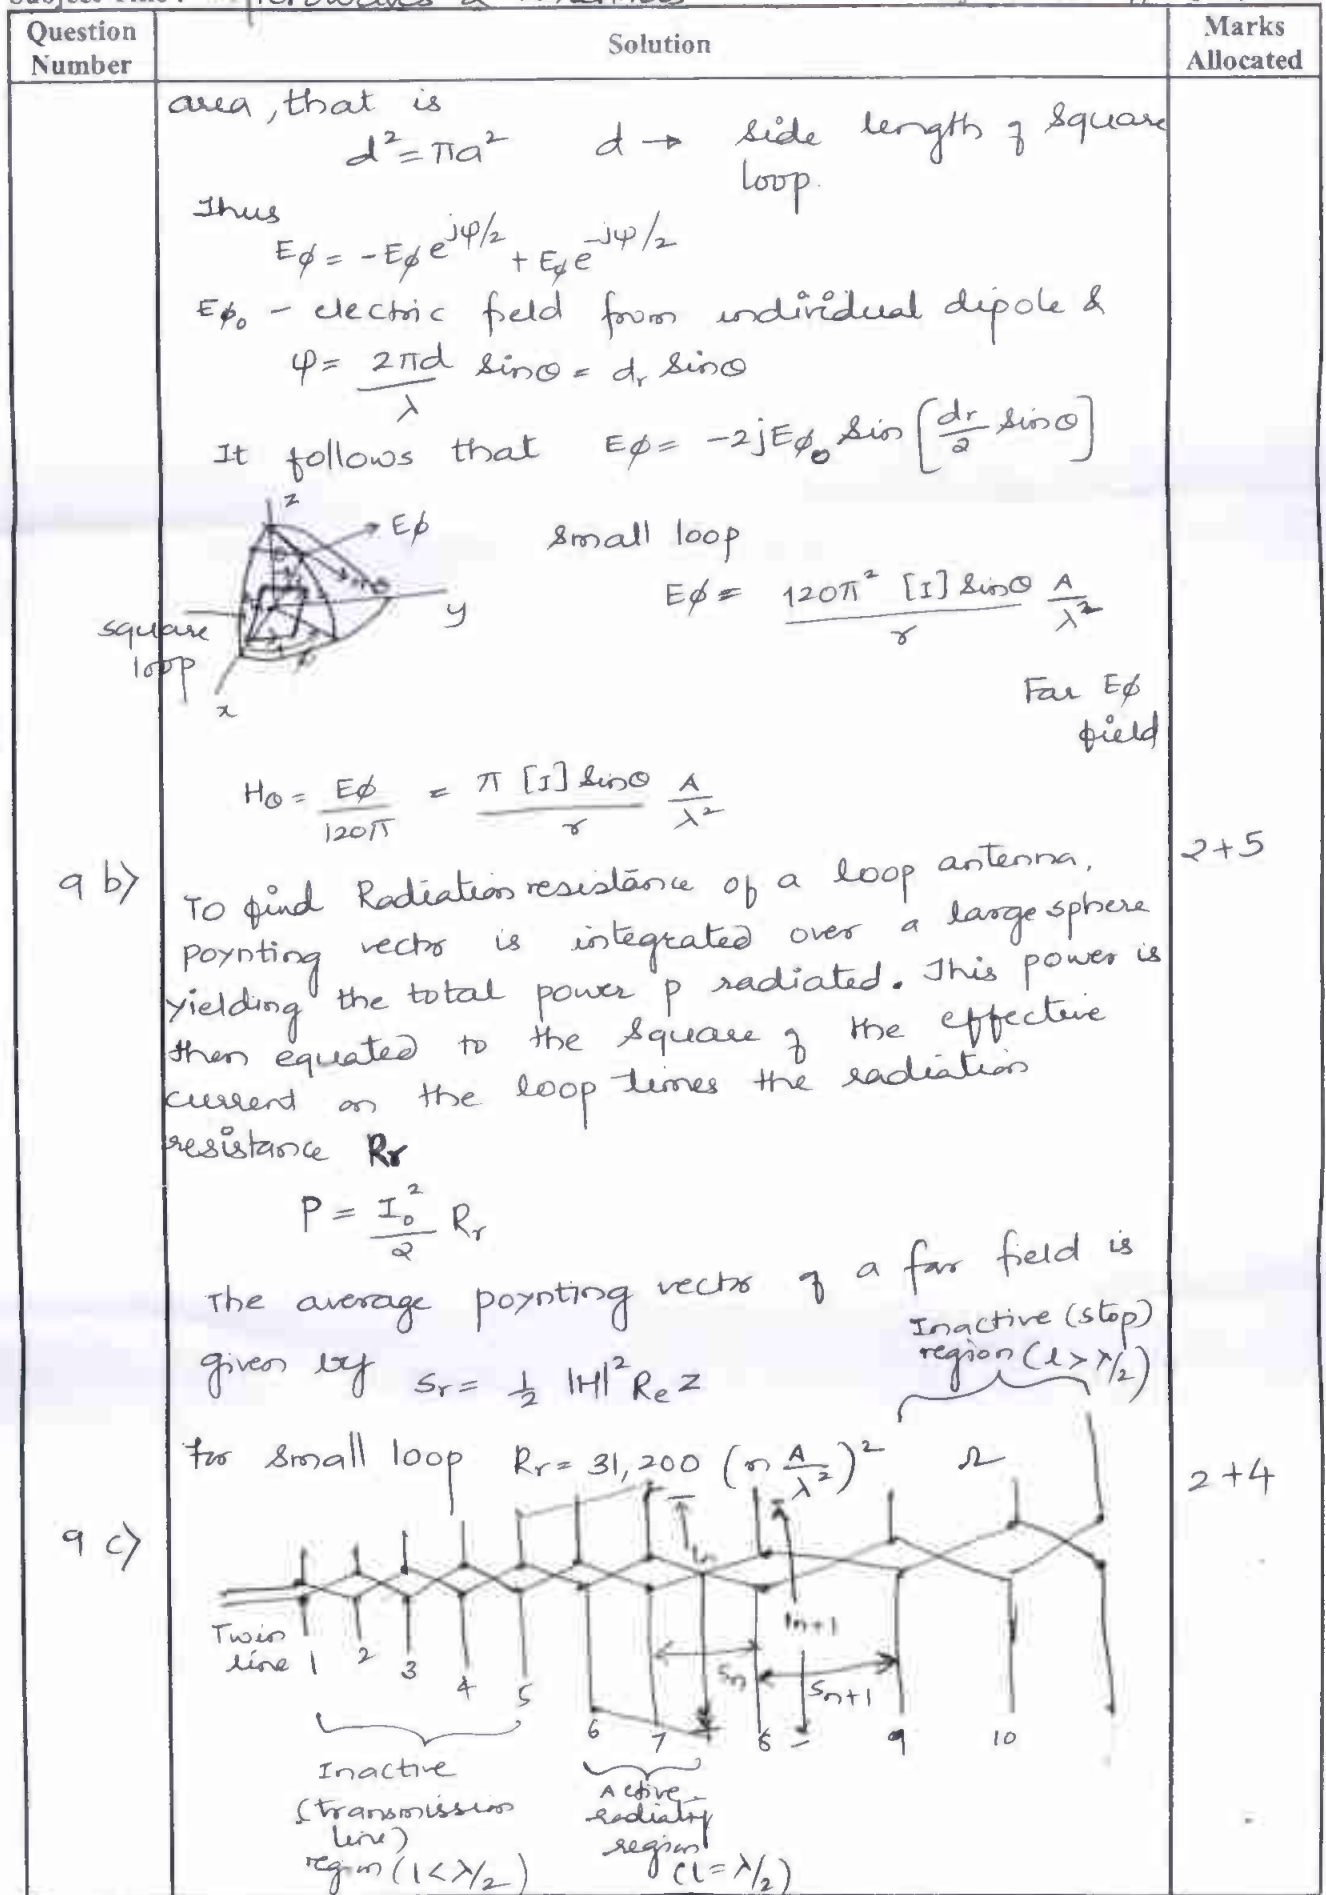 Question Number
Solution
Marks Allocated
area, that is
d² = πa² d → side length of square loop.
Thus
Eφ = -Eφ e^{jψ/2} + Eφ e^{-jψ/2}
Eφ₀ - electric field from individual dipole &
ψ = 2πd/λ sinθ = dr sinθ
It follows that Eφ = -2jEφ₀ sin [dr/2 sinθ]
z
Eφ
y
x
square loop
small loop
Eφ = 120π² [I] sinθ / r A/λ²
Far Eφ field
Hθ = Eφ/120π = π [I] sinθ / r A/λ²
9 b)
2+5
To find Radiation resistance of a loop antenna,
poynting vector is integrated over a large sphere
yielding the total power p radiated. This power is
then equated to the square of the effective
current on the loop times the radiation
resistance Rr
P = I₀²/2 Rr
The average poynting vector of a far field is
given by Sr = ½ |H|² Re Z
Inactive (stop)
region (l > λ/2)
For small loop Rr = 31,200 (n A/λ²)² Ω
2+4
9 c)
ln
ln+1
Sn
Sn+1
Twin line
1 2 3 4 5 6 7 8 9 10
Inactive
(transmission
line)
region (l < λ/2)
Active
radiating
region
(l = λ/2)